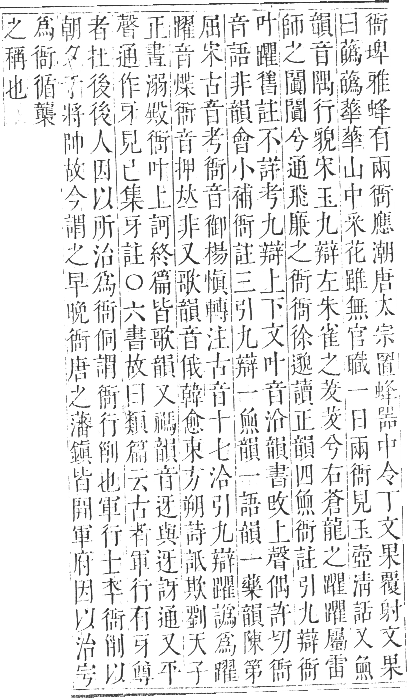 衙埤雅蜂有兩衙應潮唐太宗置蜂器中令丁文果覆射文果
曰蘤蘤華華山中采花雖無官職一日兩衙見玉壺淸話又魚
韻音隅行貌宋玉九辯左朱雀之茇茇兮右蒼龍之躍躍屬雷
師之闐闐兮通飛廉之衙衙徐邈讀正韻四魚衙註引九辯衙
叶躍舊註不詳考九辯上下文叶音沿韻書攺上聲偶許切衙
音語非韻會小補衙註三引九辯一魚韻一語韻一藥韻陳第
屈宋古音考衙音御楊愼轉注古音十七洽引九辯躍譌爲躍
躍音煠衙音押𠀤非又歌韻音俄韓愈東方朔詩詆欺劉天子
正晝溺殿衙叶上訶終篇皆歌韻又禡韻音迓與迓訝通又平
聲通作牙見巳集牙註○六書故曰類篇云古者軍行有牙尊
者在後後人因以所治爲衙侗謂衙行削也軍行士卒衙削以
朝夕于將帥故今謂之早晚衙唐之藩鎭皆開軍府因以治宇
爲衙循襲
之稱也